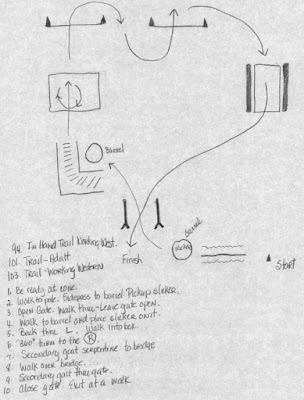 Barrel
Barrel
slicker
Finish
Start
94. In Hand Trail Working West.
101. Trail-Adult
103 Trail-Working Western
1. Be ready at cone.
2. Walk to pole. Sidepass to barrel Pickup slicker.
3. Open Gate. Walk thru-Leave gate open.
4. Walk to barrel and place slicker on it.
5. Back thru L. Walk into box.
6. 360° turn to the R.
7. Secondary gait serpentine to bridge
8. Walk over bridge....
9. Secondary gait thru gate.
10. Close gate. Exit at a walk